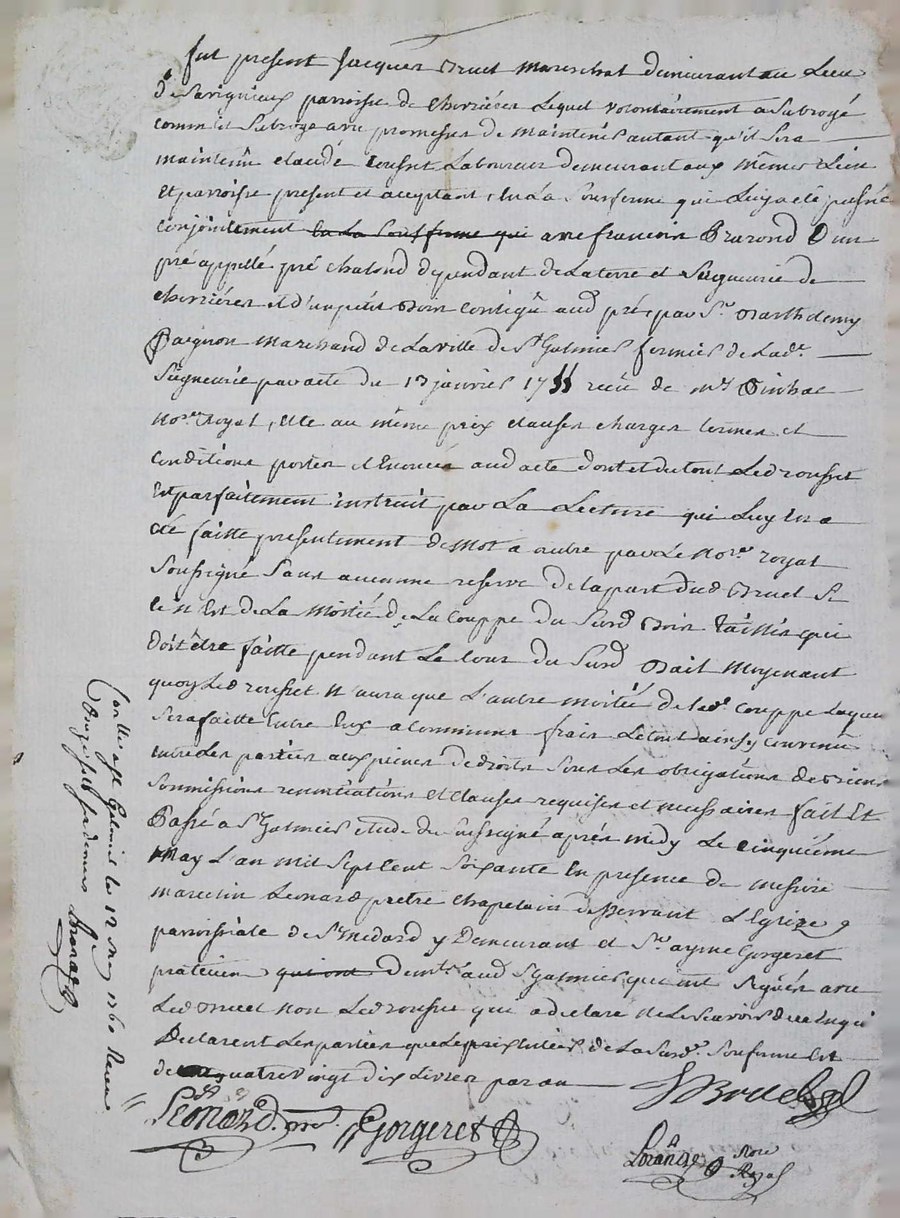 fut present Jacques Bruel Mareschal demeurant au Lieu
de Savignieux parroisse de Chevriéres Lequel volontairement a Subrogé
comm' il Subroge avec promesses de maintenir autant qu'il Sera
maintenû claude rousset Laboureur demeurant aux mêmes Lieu
Et parroisse present et aceptant, En La Sousferme qui Luy a eté passée
conjointement en La Sousferme qui avec francois D'un
pré appellé pré chalond dependant de La terre et Seigneurie de
chevriéres et d'un petit Bois Contigû aud pré, par Sr. Barthelemy
Paignon Marchand de La ville de St Galmier fermier de Lade.
Seigneurie par acte du 13 janvier 1755 reçu de me
Nore. royal, Elle au même prix clauses charges termes et
conditions portés et Enoncés aud acte dont et du tout Led rousset
Est parfaitement instruit par La Lecture qui Luy En a
été faitte presentement de Mot a autre par Le Nore. royal
Soussigné Sans aucunne reserve de la part dud Bruel Si
ce n'Est de La Moitié de La Couppe du Susd Bois taillis qui
doit être faitte pendant Le Cour du Susd Bail Moyenant
quoy Led rousset N'aura que L'autre moitié de Lade. Couppe Laquelle
Sera faitte Entre Eux a Communs frais Le tout ainsy convenû
entre Les parties aux peines de droits Sous Les obligations de Biens
Soumissions renontiations et clauses requises et necessaires fait Et
Passé a St Galmier etude du Soussigné aprés midy Le Cinquiéme
May L'an mil Sept Cent Soixante En presence de messire
marcelin Leonard pretre chapelain desservant L'Eglize
parroissiale de St Medard y Demeurant et Sr. ayme Gorgeret
praticien qui ont demt. aud St Galmier, qui ont Signés avec
Led Bruel Non Led rousset qui a declaré Ne Le Scavoir de ce Enquis
Declarent Les parties que Le prix Entier de La Susde. Sousferme Est
de quatre vingt dix Livres par an
J Bruel
Leonard. ptre. Gorgeret
Lorande Nore Royal
Conllé a St Galmier le 12 May 1760 Receu
Douze sols six deniers Lorande